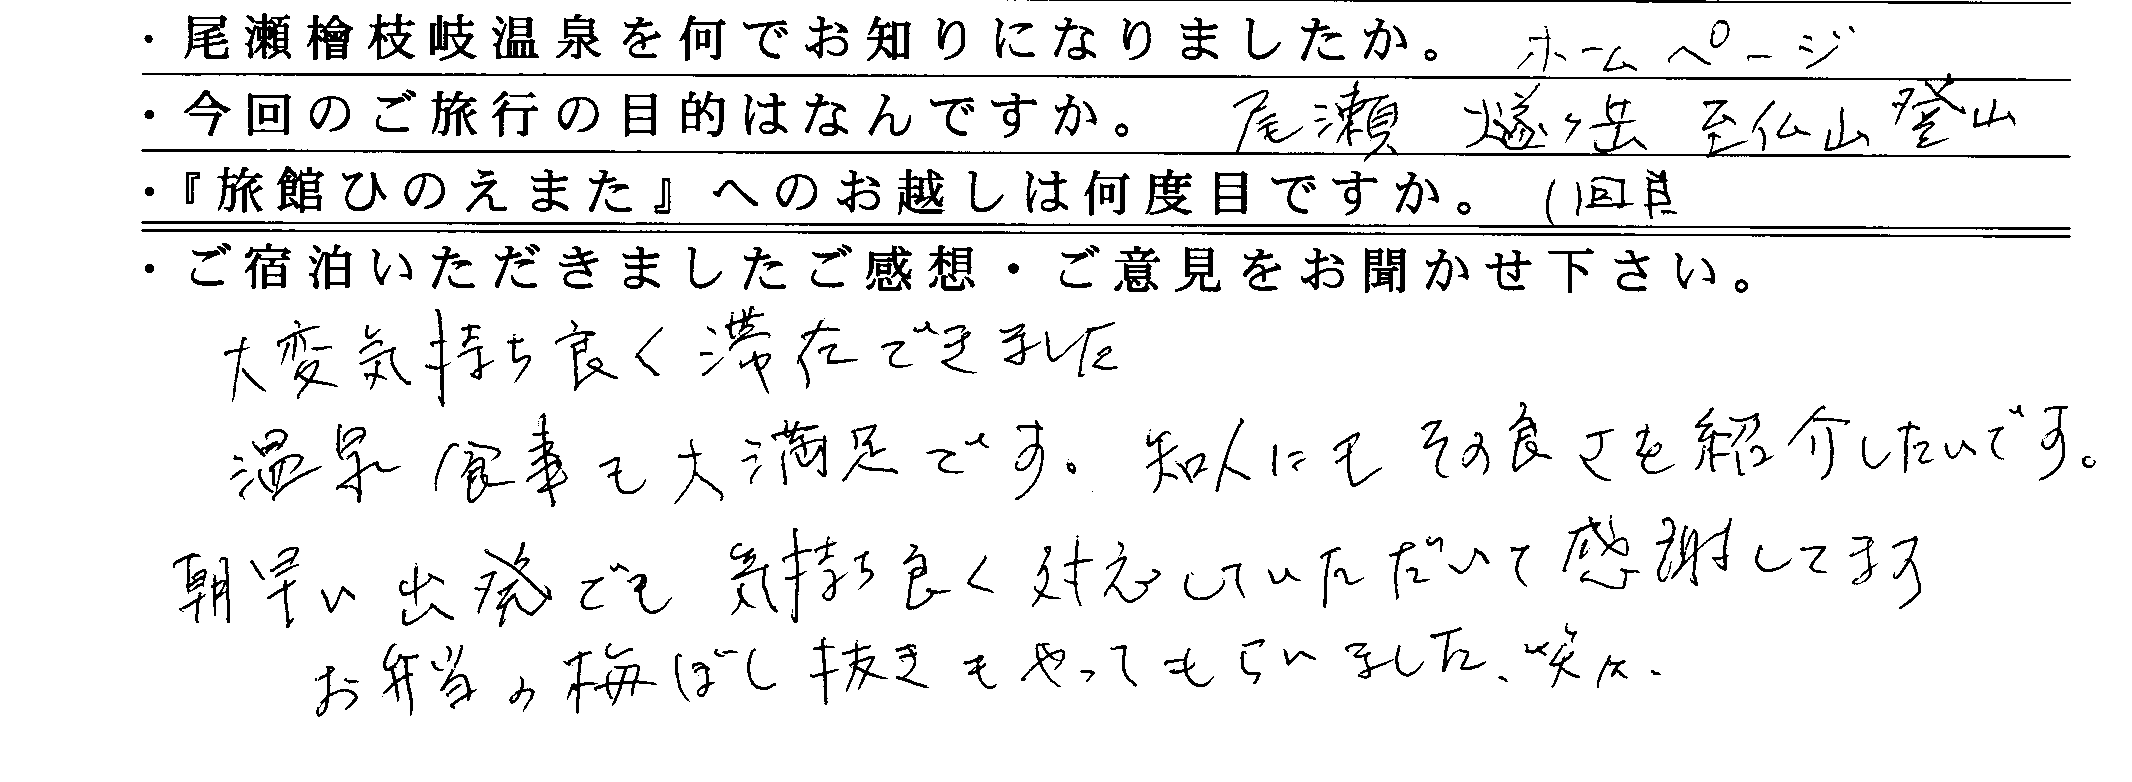 ・尾瀬檜枝岐温泉を何でお知りになりましたか。 ホームページ
・今回のご旅行の目的はなんですか。 尾瀬 燧ヶ岳 至仏山 登山
・『旅館ひのえまた』へのお越しは何度目ですか。 1回目
・ご宿泊いただきましたご感想・ご意見をお聞かせ下さい。
大変気持ち良く滞在できました
温泉/食事も大満足です。知人にもその良さを紹介したいです。
朝早い出発でも気持ち良く対応していただいて感謝してます
お弁当の梅ぼし抜きもやってもらいました、笑